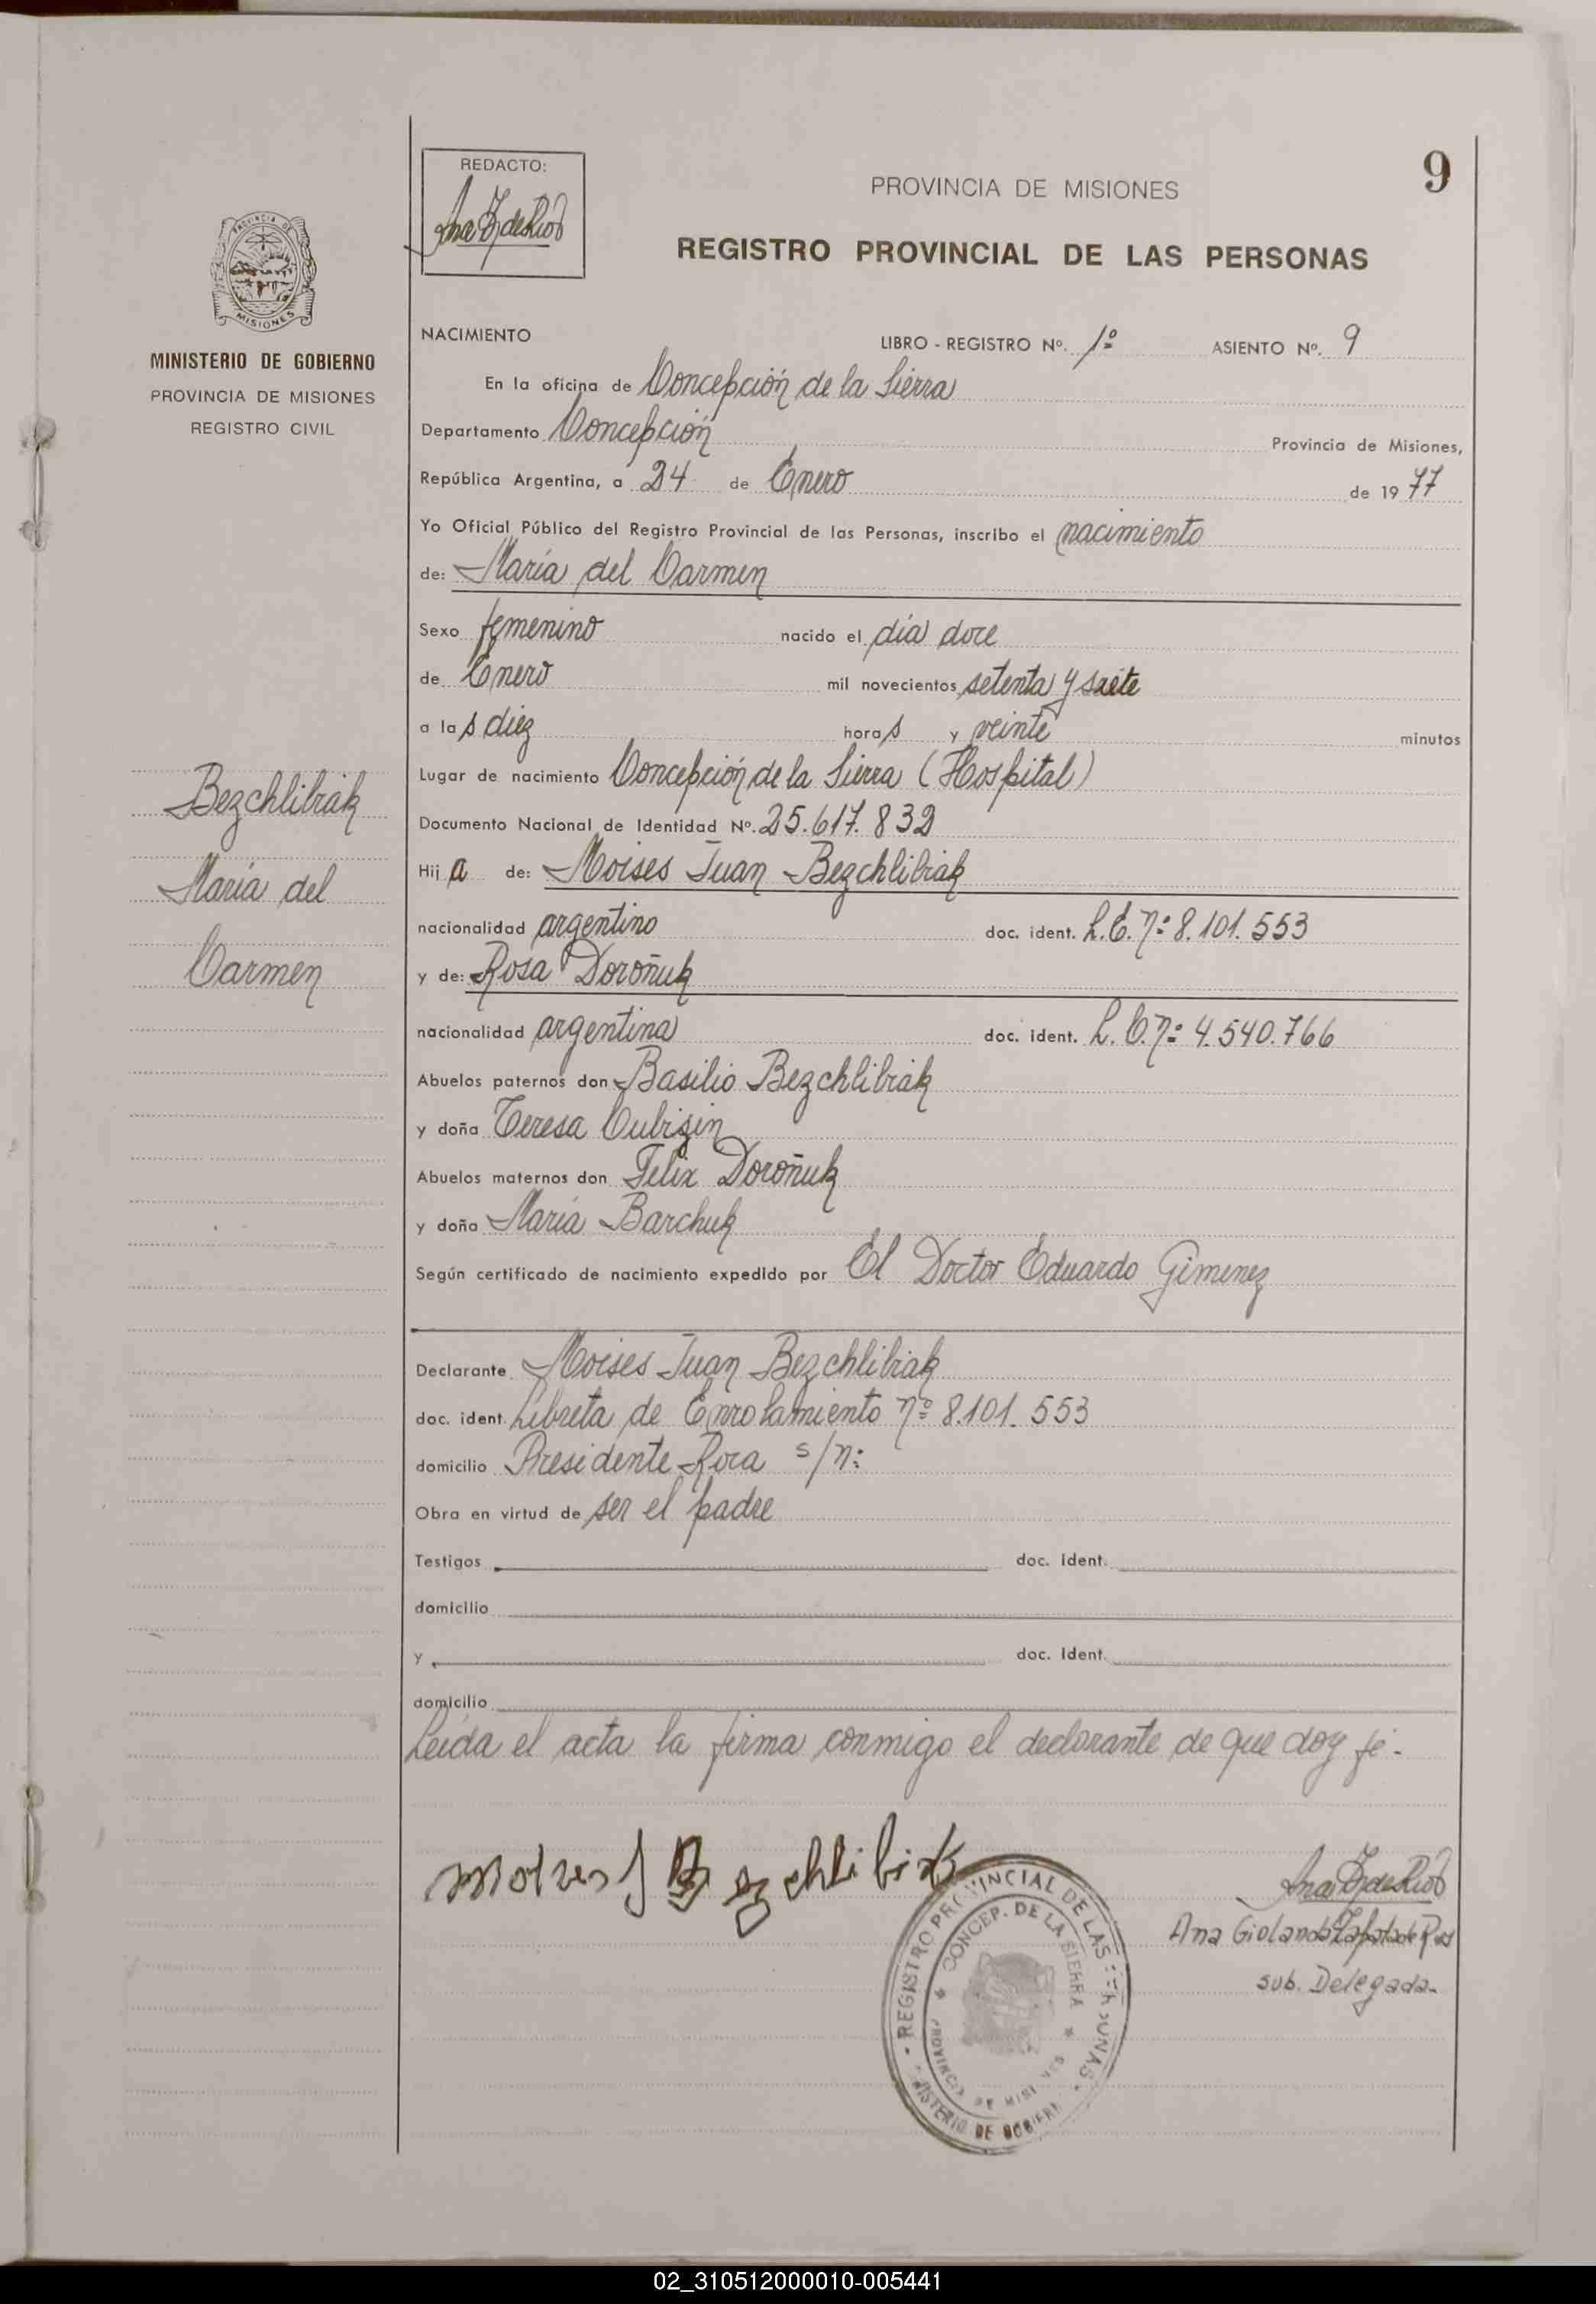 9
REDACTO:
PROVINCIA DE MISIONES
REGISTRO PROVINCIAL DE LAS PERSONAS
PROVINCIA DE
MISIONES
MINISTERIO DE GOBIERNO
PROVINCIA DE MISIONES
REGISTRO CIVIL
NACIMIENTO LIBRO - REGISTRO Nº. 1º ASIENTO Nº. 9
En la oficina de Concepción de la Sierra
Departamento Concepción Provincia de Misiones,
República Argentina, a 24 de Enero de 1977
Yo Oficial Público del Registro Provincial de las Personas, inscribo el nacimiento
de: María del Carmen
Sexo femenino nacido el día doce
de Enero mil novecientos setenta y siete
a las diez horas y veinte minutos
Lugar de nacimiento Concepción de la Sierra (Hospital)
Documento Nacional de Identidad Nº. 25.617.832
Hija de: Moises Juan Bezchlibiak
nacionalidad argentino doc. ident. L.E. nº 8.101.553
y de: Rosa Doroñuk
nacionalidad argentina doc. ident. L.C. nº 4.540.766
Abuelos paternos don Basilio Bezchlibiak
y doña Teresa Cubizin
Abuelos maternos don Felix Doroñuk
y doña María Barchuk
Según certificado de nacimiento expedido por El Doctor Eduardo Gimenez
Bezchlibiak
María del
Carmen
Declarante Moises Juan Bezchlibiak
doc. ident. Libreta de Enrolamiento nº 8.101.553
domicilio Presidente Roca s/n:
Obra en virtud de ser el padre
Testigos doc. Ident.
domicilio
y doc. Ident.
domicilio
Leída el acta la firma conmigo el declarante de que doy fé.
Moises J Bezchlibiak
REGISTRO PROVINCIAL DE LAS PERSONAS
CONCEP. DE LA SIERRA
PROVINCIA DE MISIONES
MINISTERIO DE GOBIERNO
Ana
sub. Delegada
02_310512000010-005441